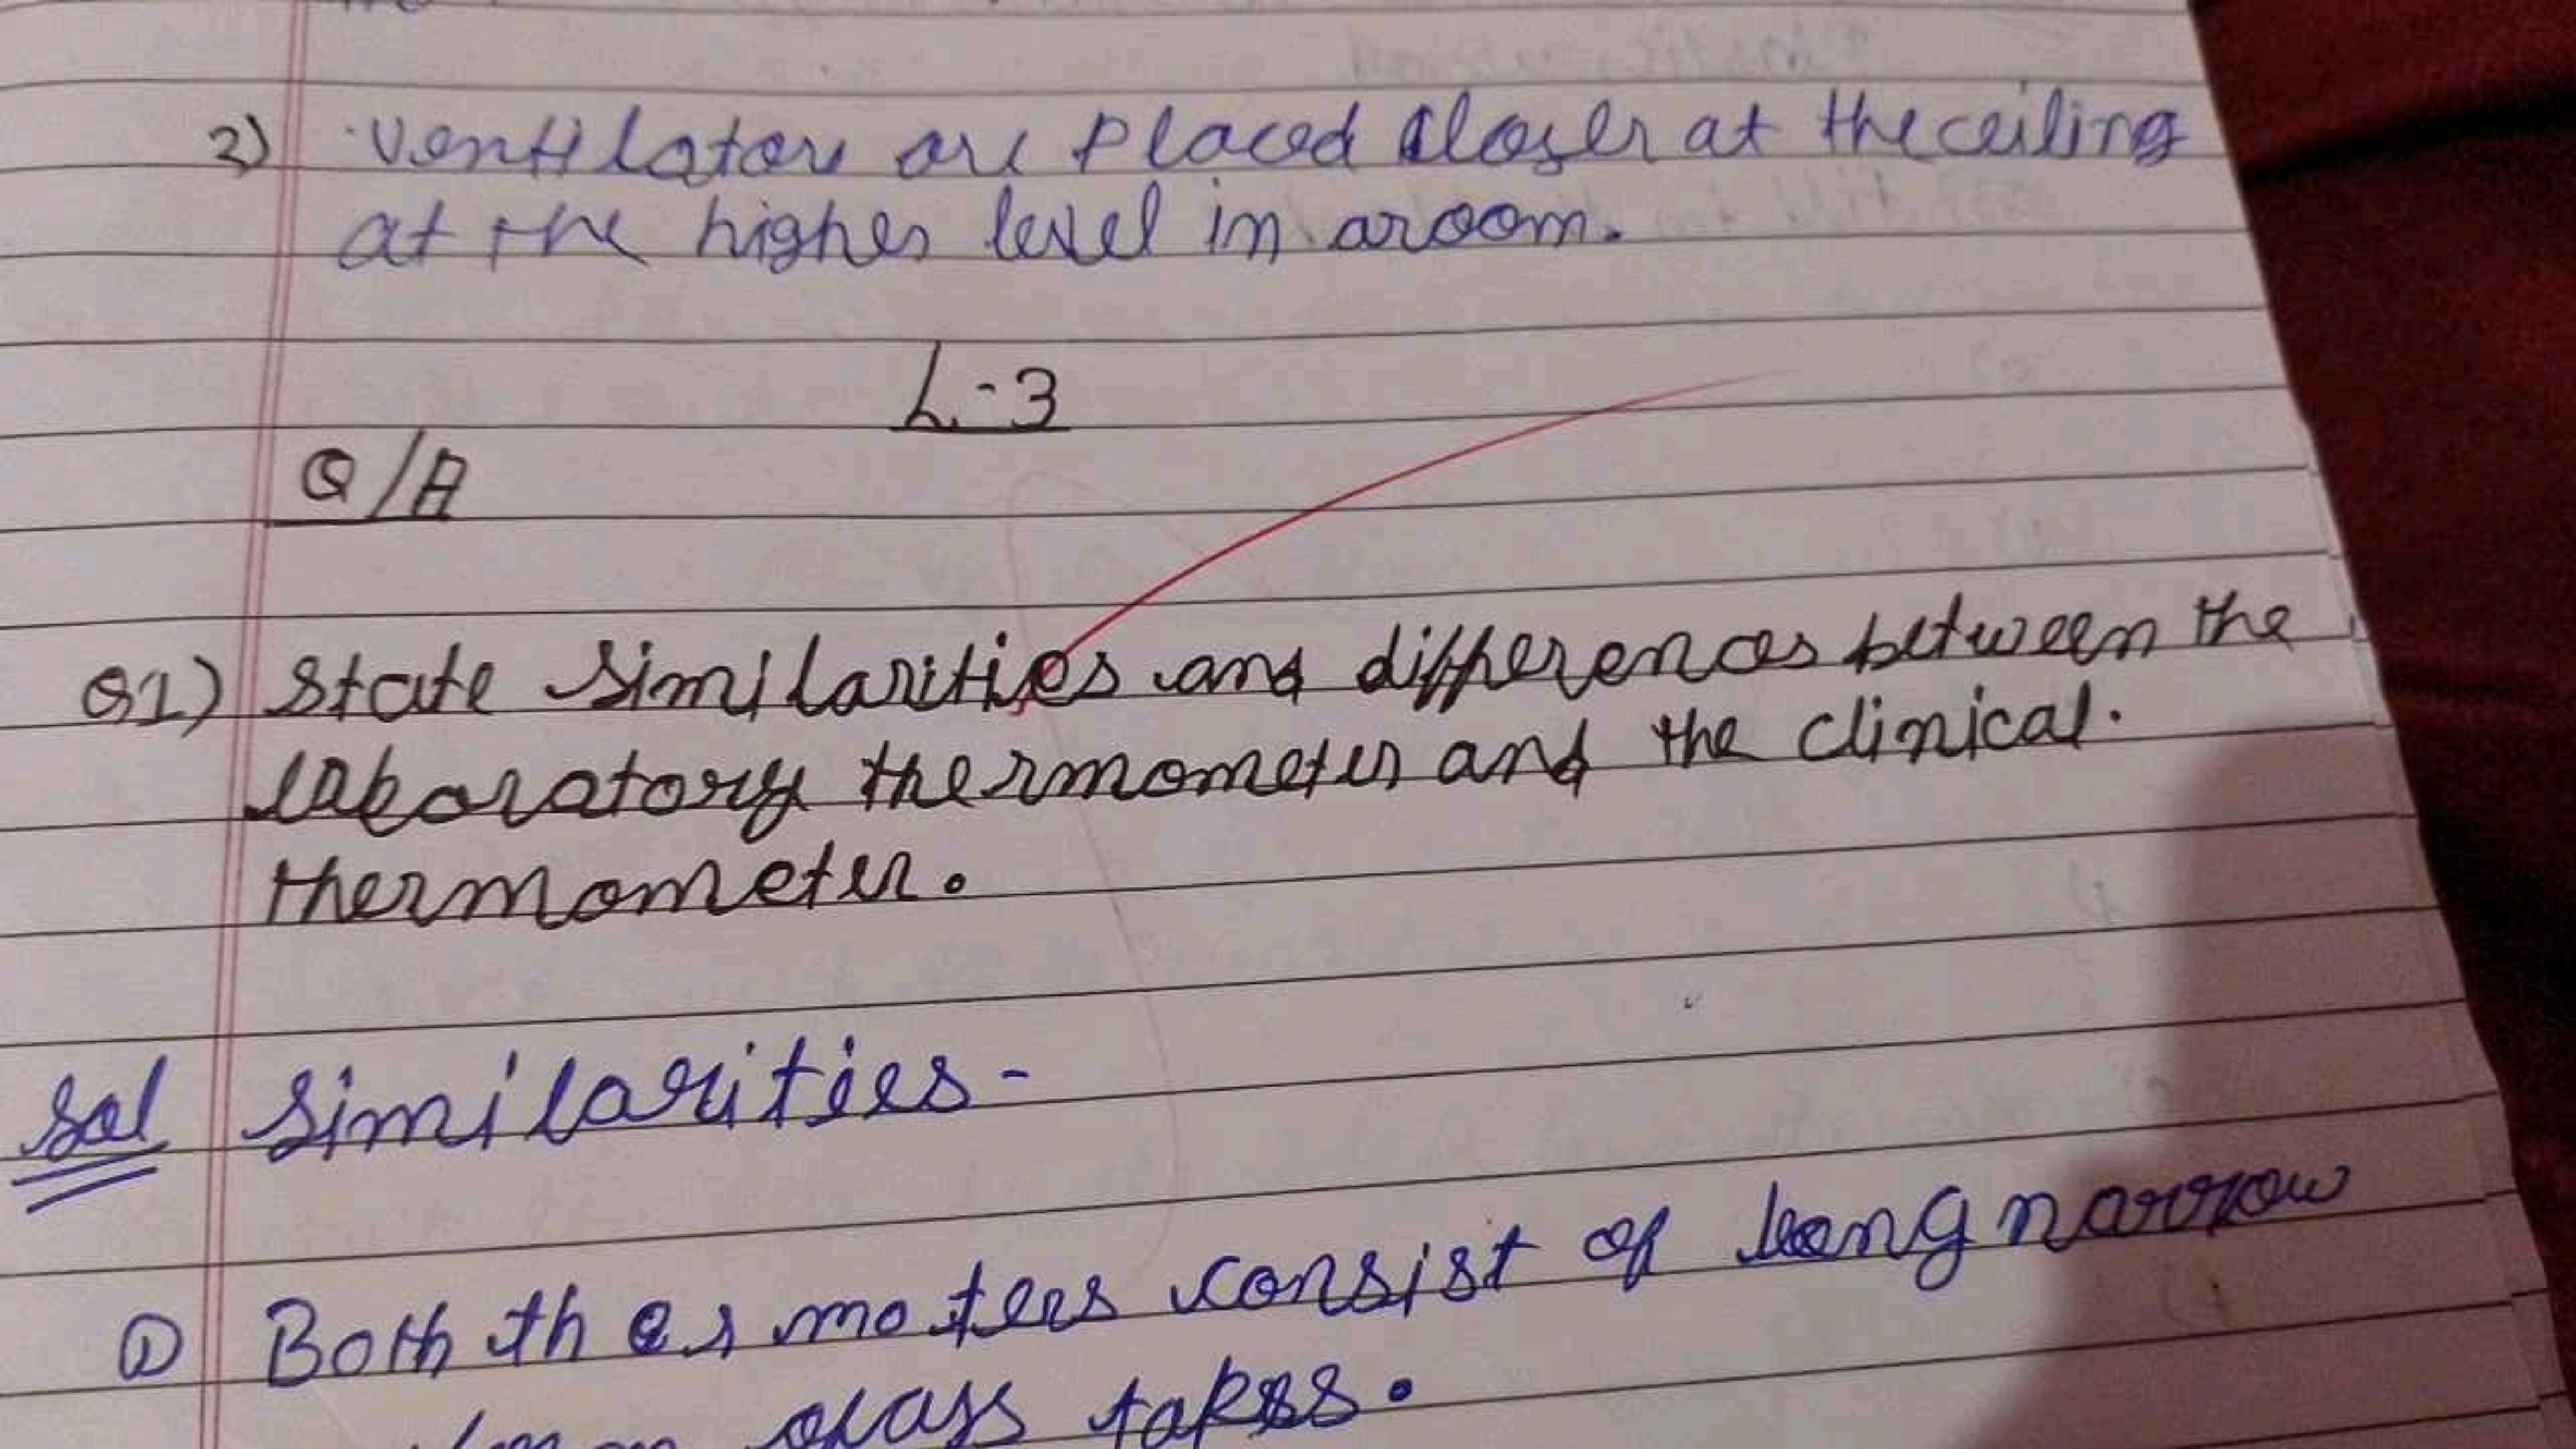 2) Ventilators are placed closer at the ceiling
at the higher level in a room.
L-3
Q/A
Q1) State similarities and differences between the
laboratory thermometer and the clinical.
thermometer.
Sol Similarities-
① Both thermoters consist of long narrow
glass